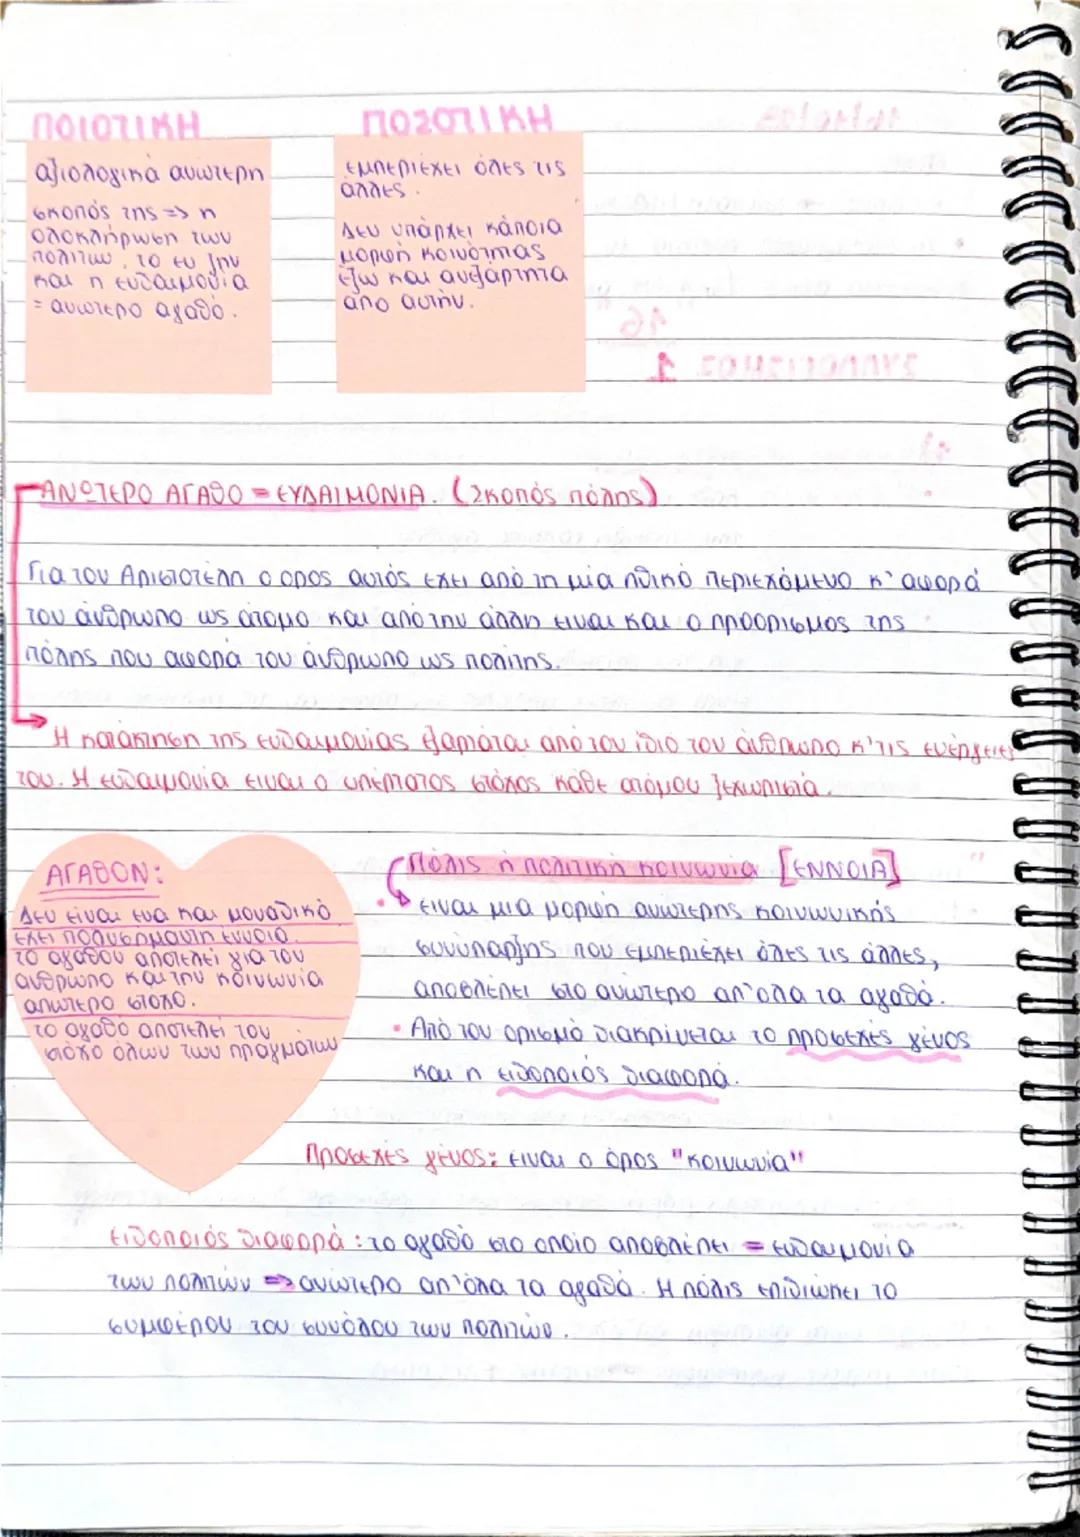 ΠΟΙΟΤΙΚΗ
αξιολογικά ανώτερη
σκοπός της => η
ολοκλήρωση των
πολιτών, το ευ ζην
και η ευδαιμονία
= ανώτερο αγαθό.
ΠΟΣΟΤΙΚΗ
εμπεριέχει όλες τις
άλλες.
Δεν υπάρχει κάποια
μορφή κοινότητας
έξω και ανεξάρτητα
από αυτήν.
ΑΝΩΤΕΡΟ ΑΓΑΘΟ = ΕΥΔΑΙΜΟΝΙΑ. (Σκοπός πόλης)
Για τον Αριστοτέλη ο όρος αυτός έχει από τη μία ηθικό περιεχόμενο κ' αφορά
τον άνθρωπο ως άτομο και από την άλλη είναι και ο προορισμός της
πόλης που αφορά τον άνθρωπο ως πολίτης.
Η κατάκτηση της ευδαιμονίας εξαρτάται από τον ίδιο τον άνθρωπο κ' τις ενέργειες
του. Η ευδαιμονία είναι ο υπέρτατος στόχος κάθε ατόμου ξεχωριστά.
ΑΓΑΘΟΝ:
Δεν είναι ένα και μοναδικό
έχει πολυσήμαντη έννοια.
το αγαθόν αποτελεί για τον
άνθρωπο και την κοινωνία
απώτερο στόχο.
το αγαθό αποτελεί τον
στόχο όλων των πραγμάτων
Πόλις ή πολιτική κοινωνία [ΕΝΝΟΙΑ]
• είναι μια μορφή ανώτερης κοινωνικής
συνύπαρξης που εμπεριέχει όλες τις άλλες,
αποβλέπει στο ανώτερο απ'όλα τα αγαθά.
• Από τον ορισμό διακρίνεται το προσεχές γένος
και η ειδοποιός διαφορά.
Προσεχές γένος: είναι ο όρος "κοινωνία"
ειδοποιός διαφορά: το αγαθό στο οποίο αποβλέπει = ευδαιμονία
των πολιτών => ανώτερο απ'όλα τα αγαθά. Η πόλις επιδιώκει το
συμφέρον του συνόλου των πολιτών.